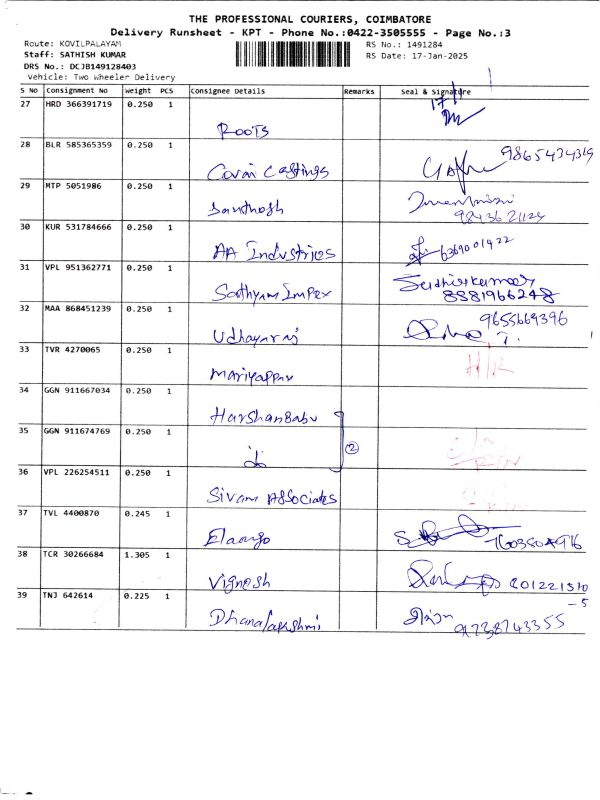 THE PROFESSIONAL COURIERS, COIMBATORE
Delivery Runsheet - KPT - Phone No.:0422-3505555 - Page No.:3
Route: KOVILPALAYAM
RS No.: 1491284
Staff: SATHISH KUMAR
RS Date: 17-Jan-2025
DRS No.: DCJB149128403
Vehicle: Two Wheeler Delivery
S No Consignment No Weight PCS Consignee Details Remarks Seal & Signature
27 HRD 366391719 0.250 1
17/1
ROOTS
28 BLR 585365359 0.250 1
9865434319
Covai Castings
29 MTP 5051986 0.250 1
Santhosh
9843621124
30 KUR 531784666 0.250 1
AA Industries 6369001422
31 VPL 951362771 0.250 1
Sudhirkumar
Sathyam Impex 8881966248
32 MAA 868451239 0.250 1
9655669396
Udhayaraj
33 TVR 4270065 0.250 1
H/R
Mariyappan
34 GGN 911667034 0.250 1
HarshanBabu
35 GGN 911674769 0.250 1
②
do
36 VPL 226254511 0.250 1
Sivam Associates
37 TVL 4400870 0.245 1
Elango
38 TCR 30266684 1.305 1
Vignesh
39 TNJ 642614 0.225 1
Dhanalakshmi 9738743355